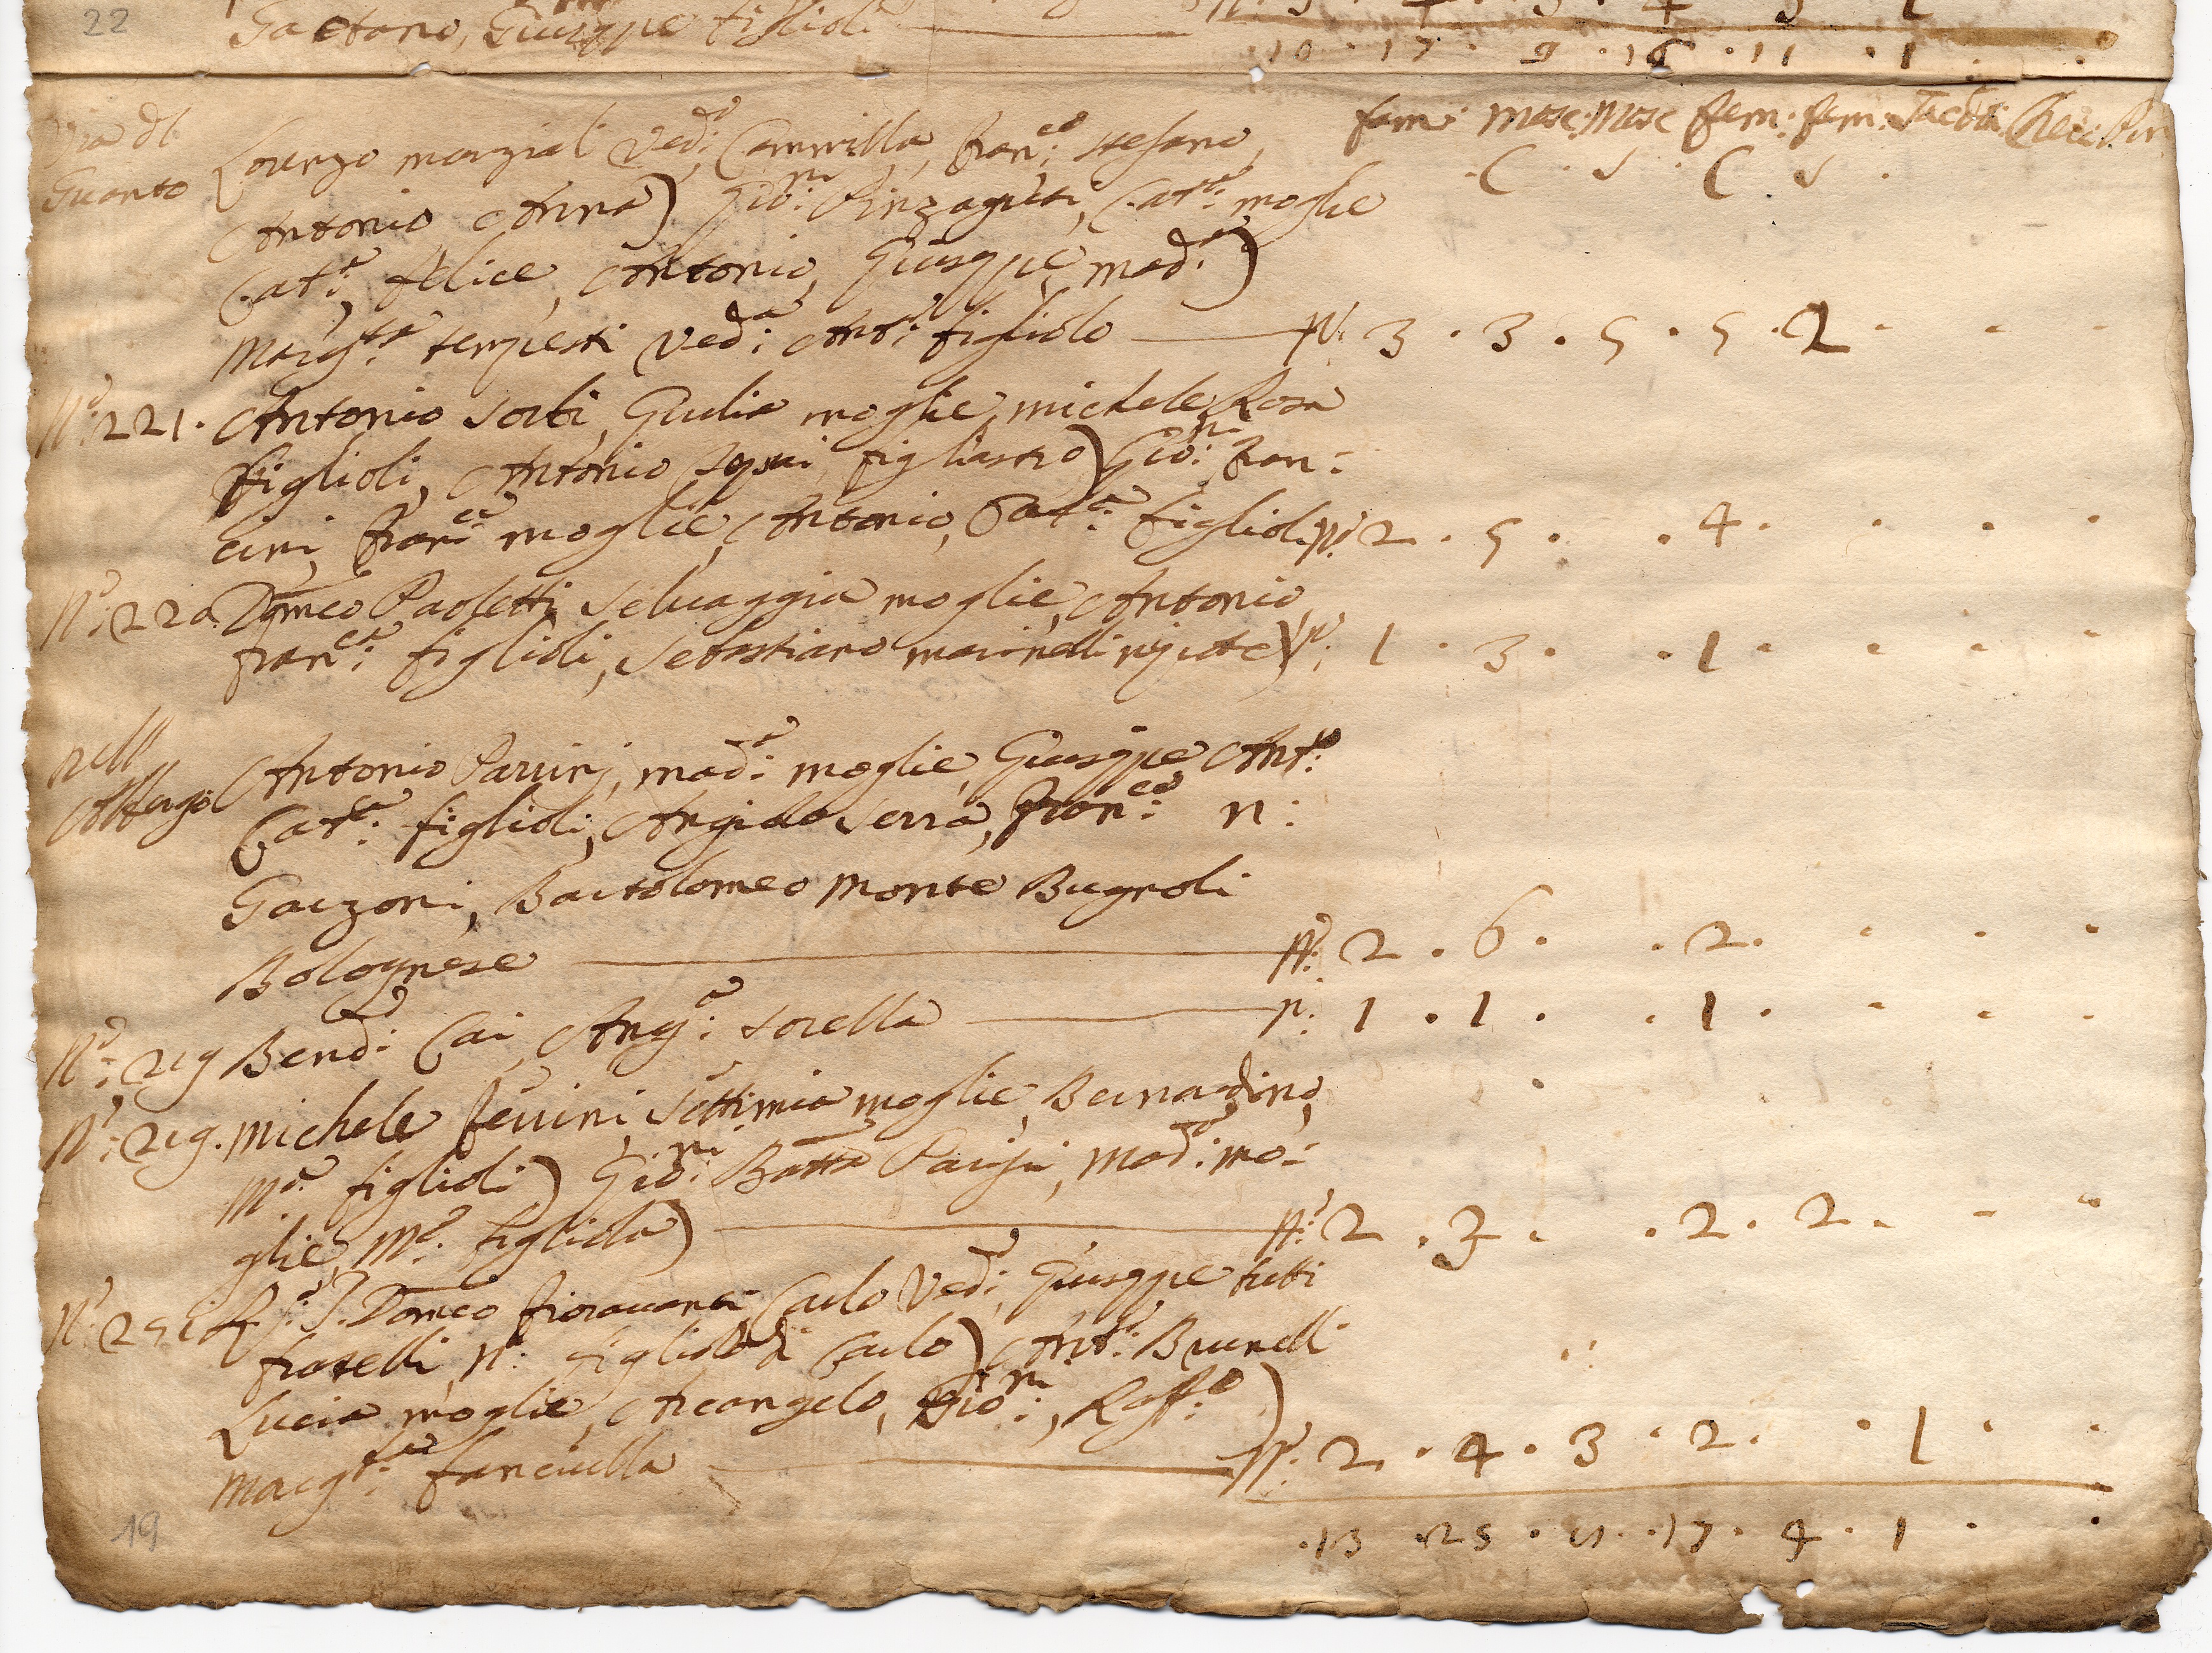 22 Gaetano, Giuseppe figlioli
10 · 17 · 9 · 16 · 11 · 1 · ·
fam: Masc: Masc fem: fem: Sacer:
· C · S · C · S ·
Via di Lorenzo marziali Ved:o Cammilla, Fran:co stefano,
Guanto Antonio Anna) Gio:ni Pinzaguti, Cat:a moglie
Cat:a, felice, Antonio, Giuseppe, mad:a)
Marg:ta tempesti Ved:a Ant:o figliolo N: 3 · 3 · 5 · 5 · 2 · · ·
N:o 221. Antonio Sorbi, Giulia moglie, michele, Rosa
figlioli, Antonio figliastro) Gio:ni Fran:
cini, Fran:ca moglie, Antonio, Cat:a figlioli N:o 2 · 5 · · 4 · · · ·
N:o 220. Domco Paoletti, Selvaggia moglie, Antonio,
Fran:ca figlioli, Sebastiano marinelli nipote) N: 1 · 3 · · 1 · · · ·
nell Antonio Parrini, mad:a moglie, Giuseppe Ant:o
Cat:a figlioli, Angiolo Serra, Fran:co n:
Garzoni, Bartolomeo Monte Bugnoli
Bolognese N:o 2 · 6 · · 2 · · · ·
N:o 219 Bend:o Cai, Ang:a sorella N: 1 · 1 · · 1 · · · ·
N:o 219. Michele ferrini, Settimia moglie, Bernardino,
M:a figlioli) Gio:ni Batta Parigi, Mad:a mo:
glie, M:a figliola) N:o 2 · 3 · · 2 · 2 · · ·
Domco fioravanti Carlo Ved:o, Giuseppe tutti
fratelli, N: figliolo di Carlo) Ant:o Brunelli
Lucia moglie, Arcangelo, Gio:ni, Raff:o)
Marg:ta fanciulla N:o 2 · 4 · 3 · 2 · · 1 · ·
19 · 13 · 25 · · 17 · 4 · 1 · ·